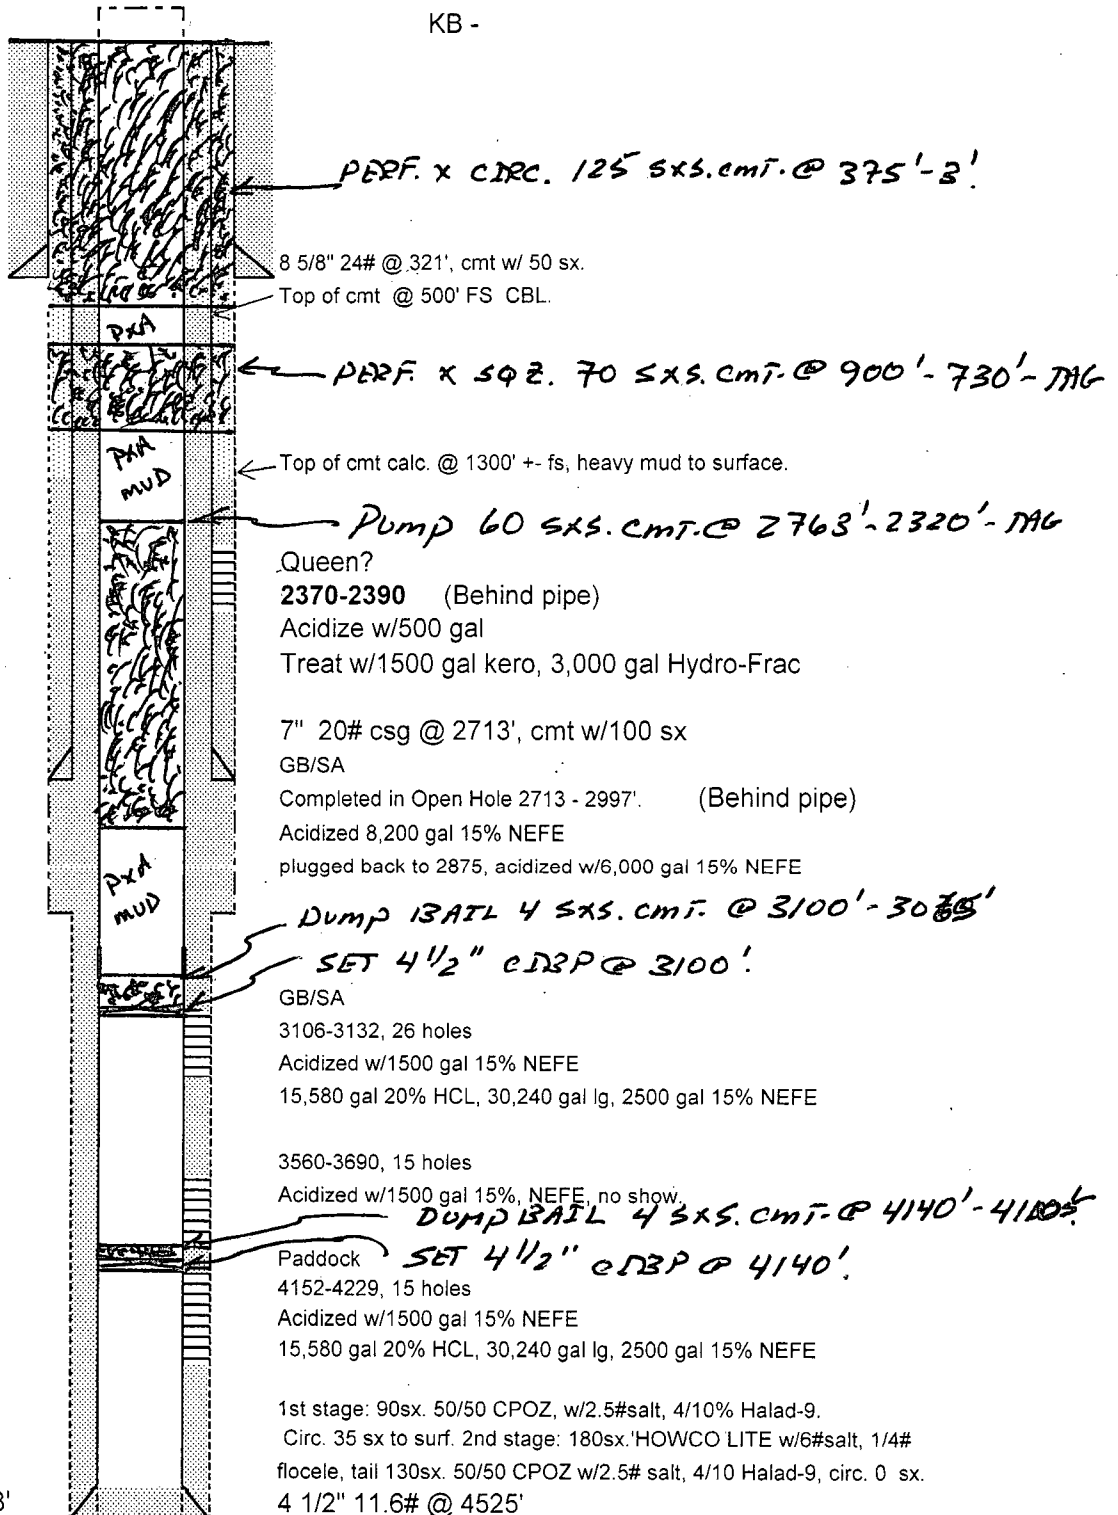 KB -
PERF. X CIRC. 125 SXS. CMT. @ 375'-3'.
8 5/8" 24# @ 321', cmt w/ 50 sx.
Top of cmt @ 500' FS CBL.
PXA
PERF. X SQZ. 70 SXS. CMT. @ 900'-730'-TAG
PXA
MUD
Top of cmt calc. @ 1300' +- fs, heavy mud to surface.
PUMP 60 SXS. CMT. @ 2763'-2320'-TAG
Queen?
2370-2390 (Behind pipe)
Acidize w/500 gal
Treat w/1500 gal kero, 3,000 gal Hydro-Frac
7" 20# csg @ 2713', cmt w/100 sx
GB/SA
Completed in Open Hole 2713 - 2997'. (Behind pipe)
Acidized 8,200 gal 15% NEFE
plugged back to 2875, acidized w/6,000 gal 15% NEFE
PXA
MUD
DUMP BAIL 4 SXS. CMT. @ 3100'-
SET 4 1/2" CIBP @ 3100'.
GB/SA
3106-3132, 26 holes
Acidized w/1500 gal 15% NEFE
15,580 gal 20% HCL, 30,240 gal lg, 2500 gal 15% NEFE
3560-3690, 15 holes
Acidized w/1500 gal 15%, NEFE, no show.
DUMP BAIL 4 SXS. CMT. @ 4140'-
Paddock SET 4 1/2" CIBP @ 4140'.
4152-4229, 15 holes
Acidized w/1500 gal 15% NEFE
15,580 gal 20% HCL, 30,240 gal lg, 2500 gal 15% NEFE
1st stage: 90sx. 50/50 CPOZ, w/2.5#salt, 4/10% Halad-9.
Circ. 35 sx to surf. 2nd stage: 180sx.'HOWCO LITE w/6#salt, 1/4#
flocele, tail 130sx. 50/50 CPOZ w/2.5# salt, 4/10 Halad-9, circ. 0 sx.
4 1/2" 11.6# @ 4525'